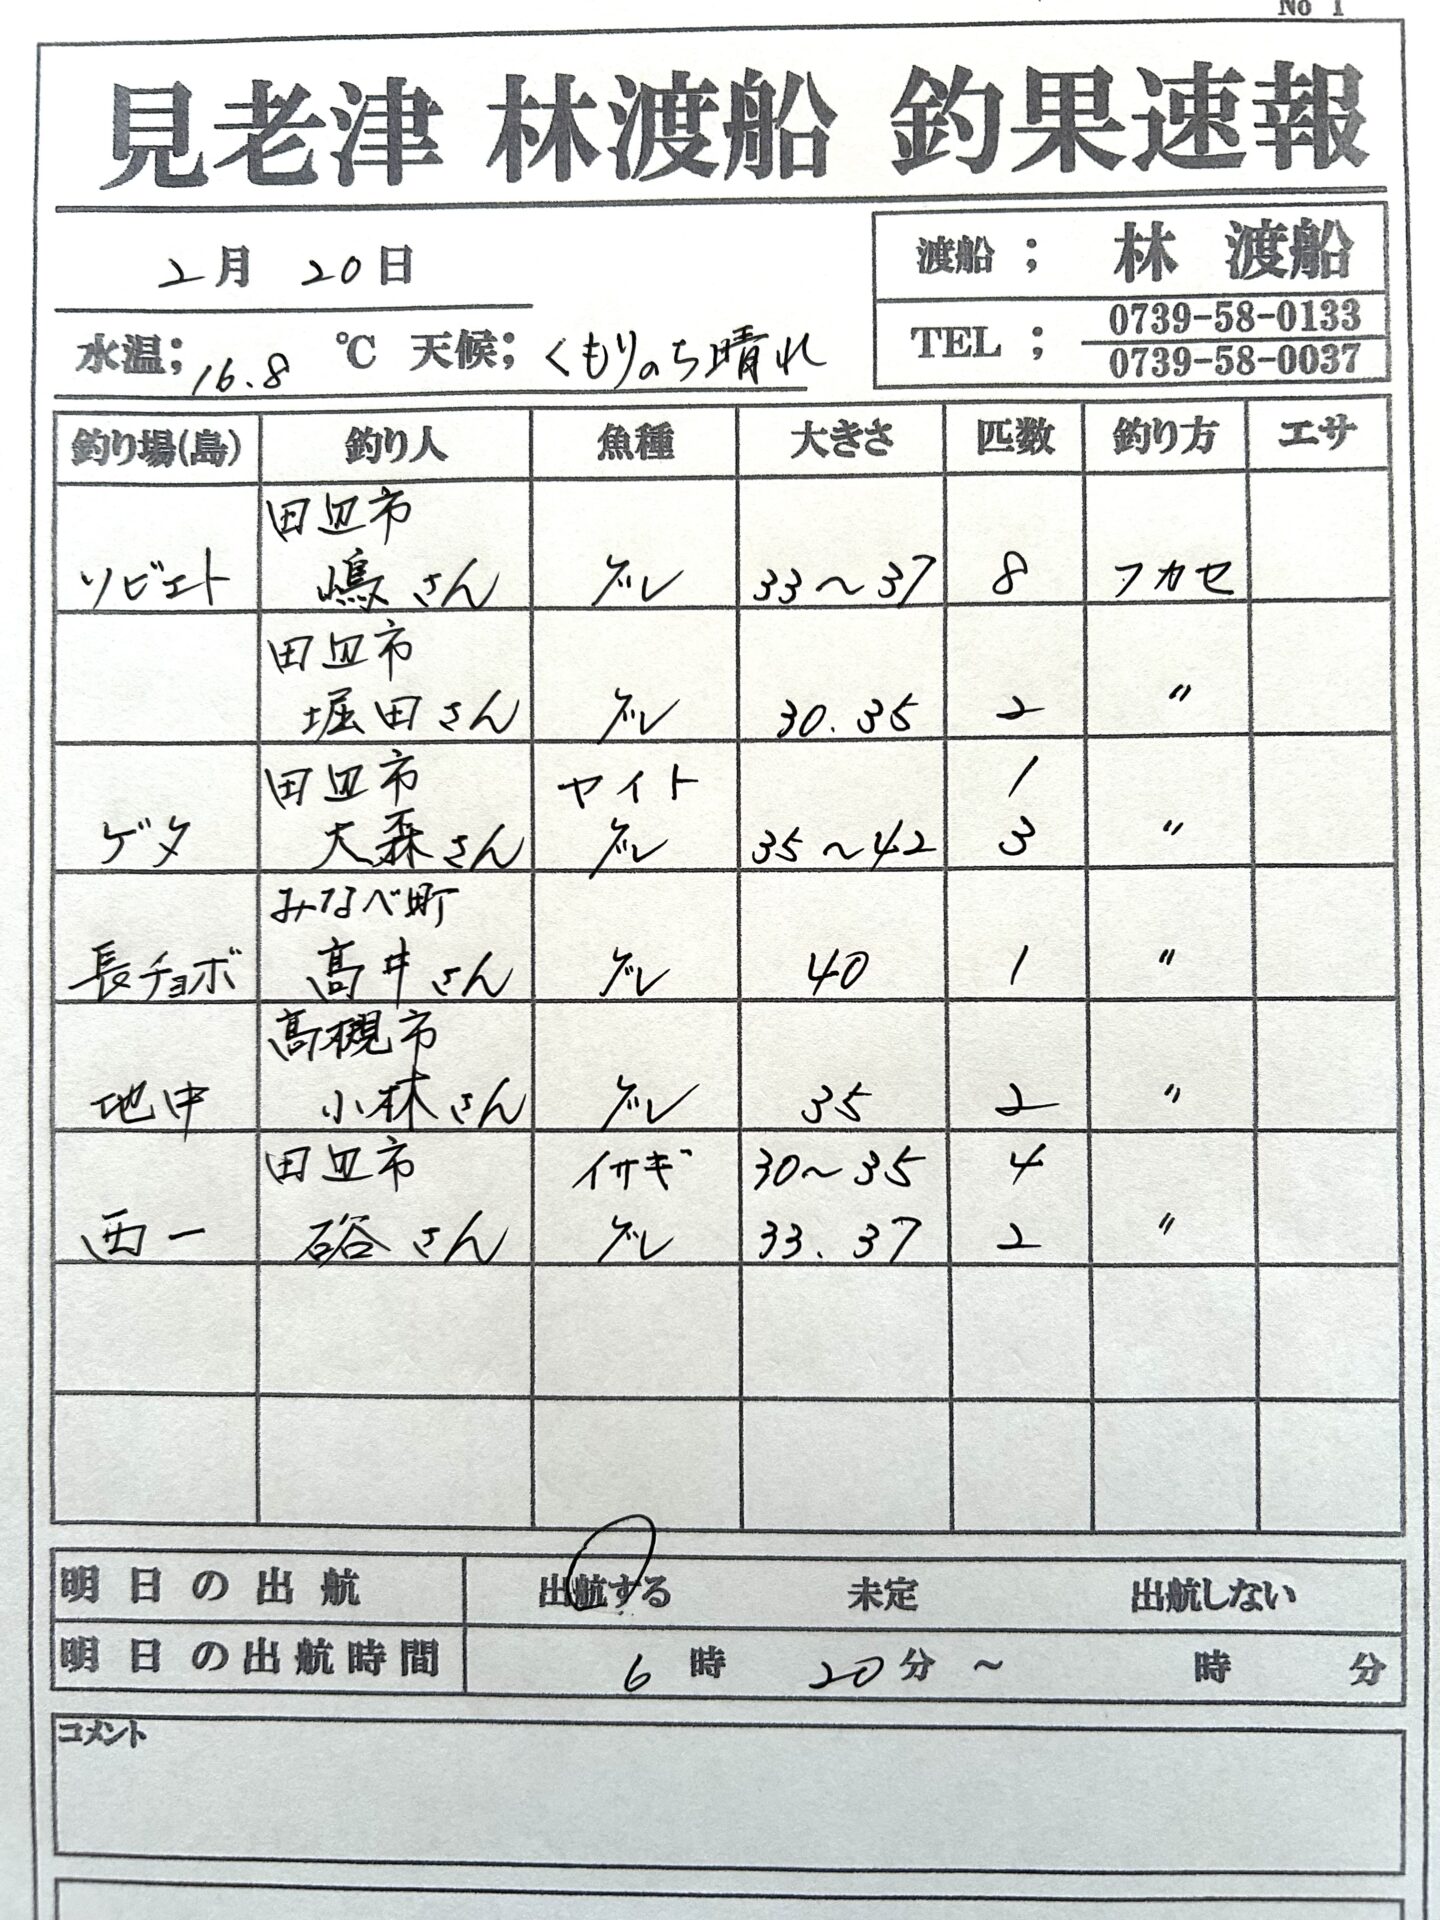 No 1
見老津 林渡船 釣果速報
2月 20日
渡船 ; 林 渡船
TEL ; 0739-58-0133
0739-58-0037
水温; 16.8 ℃ 天候; くもりのち晴れ
釣り場(島) 釣り人 魚種 大きさ 匹数 釣り方 エサ
田辺市
ソビエト 嶋さん グレ 33〜37 8 フカセ
田辺市
堀田さん グレ 30.35 2 〃
田辺市 ヤイト 1
ゲタ 大森さん グレ 35〜42 3 〃
みなべ町
長チョボ 髙井さん グレ 40 1 〃
髙槻市
地中 小林さん グレ 35 2 〃
田辺市 イサギ 30〜35 4
西一 硲さん グレ 33.37 2 〃
明日の出航 出航する 未定 出航しない
明日の出航時間 6時 20分 ~ 時 分
コメント